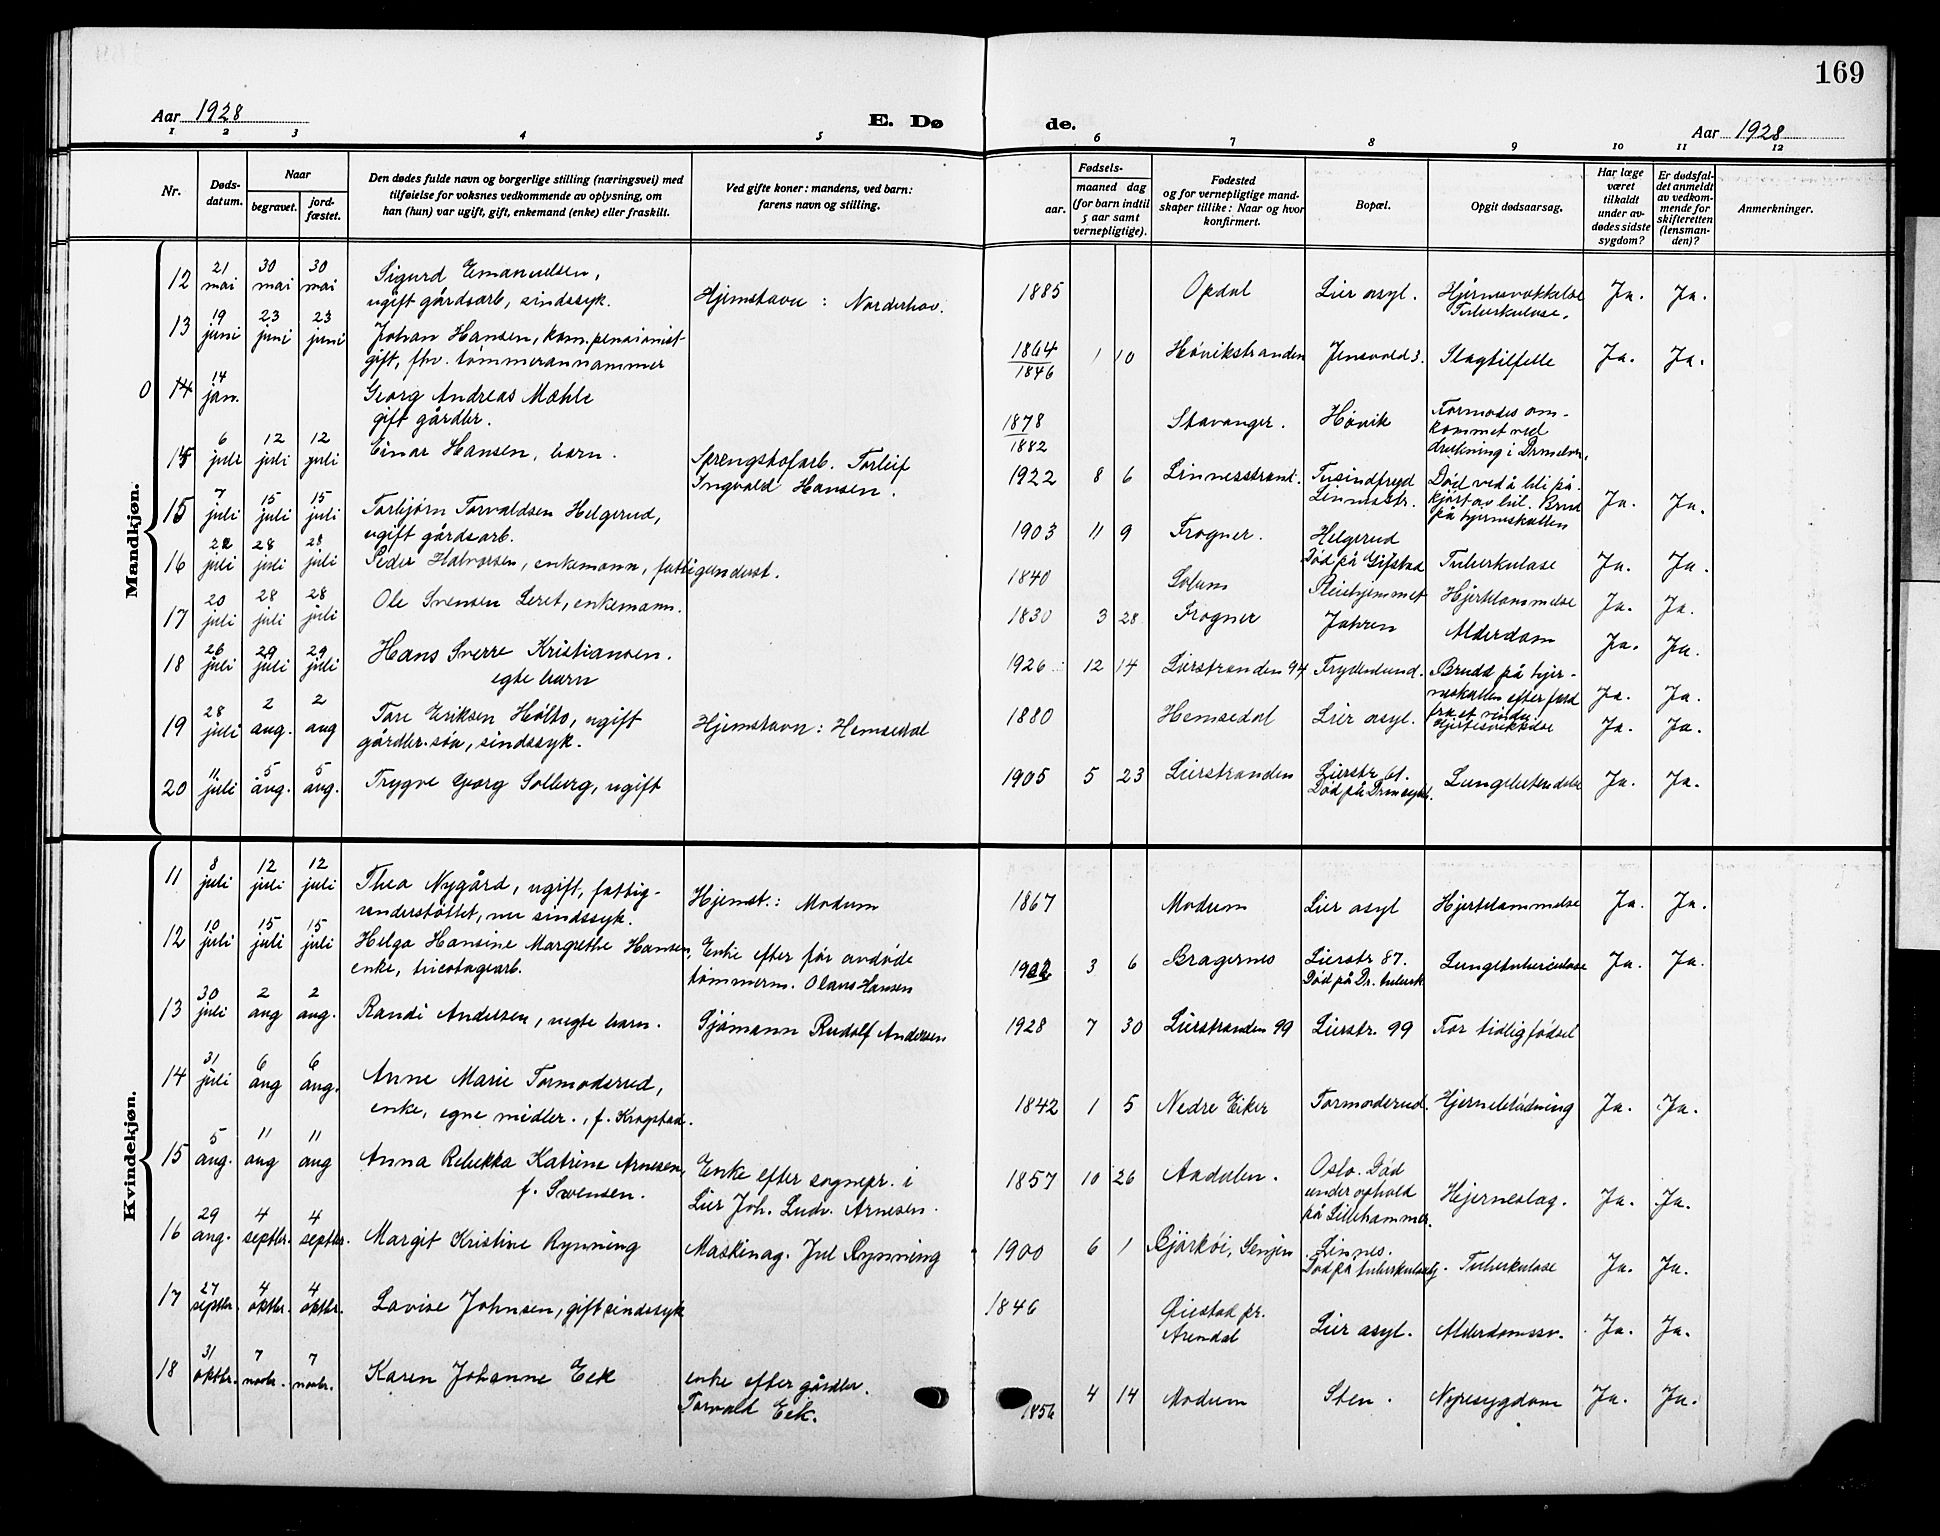 169
Aar 1928
E. Dø
de.
Aar 1928
1 2 3 4 5 6 7 8 9 10 11 12
Nr.
Døds-
datum.
Naar
begravet.
jord-
fæstet.
Den dødes fulde navn og borgerlige stilling (næringsvei) med
tilføielse for voksnes vedkommende av oplysning, om
han (hun) var ugift, gift, enkemand (enke) eller fraskilt.
Ved gifte koner: mandens, ved barn:
farens navn og stilling.
Fødsels-
aar.
maaned dag
(for barn indtil
5 aar samt
vernepligtige).
Fødested
og for vernepligtige mand-
skaper tillike: Naar og hvor
konfirmert.
Bopæl.
Opgit dødsaarsag.
Har læge
været
tilkaldt
under av-
dødes sidste
sygdom?
Er dødsfal-
det anmeldt
av vedkom-
mende for
skifteretten
(lensman-
den)?
Anmerkninger.
Mandkjøn.
12 21 mai 30 mai 30 mai Sigurd Emanuelsen,
ugift gårdsarb, sindssyk. Hjemstavn: Norderhov. 1885 Opdal Lier asyl. Hjernevækkelse
Tuberkulose. Ja. Ja.
13 19 juni 23 juni 23 juni Johan Hansen, kom. pensionist
gift, fhv. tømmerannammer 1864 1846 1 10 Høvikstranden Jensvold 3. Slagtilfelle Ja. Ja.
0 14 14 jan. Georg Andreas Mæhle
gift gårdbr. 1878 1882 Stavanger. Høvik Formodes om-
kommet ved
drukning i Drmelva.
15 6 juli 12 juli 12 juli Einar Hansen, barn. Sprengstofarb. Torleif
Ingvald Hansen. 1922 8 6 Linnesstrand. Tusindfryd
Linnesstr. Død ved å bli på-
kjørt av bil. Brud
på hjerneskallen Ja. Ja.
15 7 juli 15 juli 15 juli Torbjørn Torvaldsen Helgerud,
ugift gårdsarb. 1903 11 9 Frogner. Helgerud
Død på Gifstad Tuberkulose Ja. Ja.
16 22 juli 28 juli 28 juli Peder Halvorsen, enkemann, fattigunderst. 1840 Solum Pleiehjemmet Hjertelammelse Ja. Ja.
17 20 juli 28 juli 28 juli Ole Svensen Leret, enkemann. 1830 3 28 Frogner Jahren Alderdom Ja. Ja.
18 26 juli 29 juli 29 juli Hans Sverre Kristiansen.
egte barn 1926 12 14 Lierstranden 94 Frydenlund. Brudd på hjer-
neskallen efter fald
fra et vindu. Ja. Ja.
19 28 juli 2 aug. 2 aug Tore Eriksen Holto, ugift
gårdbr. søn, sindssyk. Hjemstavn: Hemsedal 1880 Hemsedal Lier asyl. Hjertesvækkelse Ja. Ja.
20 11 juli 5 aug. 5 aug. Trygve Georg Solberg, ugift 1905 5 23 Lierstranden Lierstr. 61.
Død på Drm sykh. Lungebetendelse Ja. Ja.
Kvindekjøn.
11 8 juli 12 juli 12 juli Thea Nygård, ugift, fattig-
understøttet, nu sindssyk. Hjemst.: Modum 1867 Modum Lier asyl Hjertelammelse Ja. Ja.
12 10 juli 15 juli 15 juli Helga Hansine Margrethe Hansen,
enke, tricotagearb. Enke efter før avdøde
tømmerm. Olaus Hansen 3 6 Bragernes Lierstr 87.
Død på Dr. tuberk Lungetuberkulose Ja. Ja.
13 30 juli 2 aug 2 aug. Randi Andersen, uegte barn. Sjømann Rudolf Andersen 1928 7 30 Lierstranden 99 Lierstr. 99 For tidlig fødsel
14 31 juli 6 aug 6 aug. Anne Marie Tormoderud,
enke, egne midler., f. Krogstad. 1842 1 5 Nedre Eiker Tormoderud. Hjerneblødning Ja. Ja.
15 5 aug. 11 aug 11 aug Anna Rebekka Katrine Arnesen,
f. Svensen. Enke efter sognepr. i
Lier Joh. Ludv. Arnesen. 1857 10 26 Aadalen. Oslo. Død
under ophold
på Lillehammer. Hjerneslag. Ja. Ja.
16 29 aug. 4 septbr. 4 septbr. Margit Kristine Rynning Maskinag. Jul Rynning 1900 6 1 Bjarkøi, Senjen Linnes.
Død på tuberkulosehj. Tuberkulose Ja. Ja.
17 27 septbr. 4 oktbr. 4 oktbr. Lovise Johnsen, gift sindssyk 1846 Øiestad pr.
Arendal Lier asyl. Alderdomssv. Ja. Ja.
18 31 oktbr. 7 novbr. 7 novbr. Karen Johanne Eek enke efter gårdbr.
Torvald Eek. 1856 4 14 Modum Sten. Nyresygdom Ja. Ja.